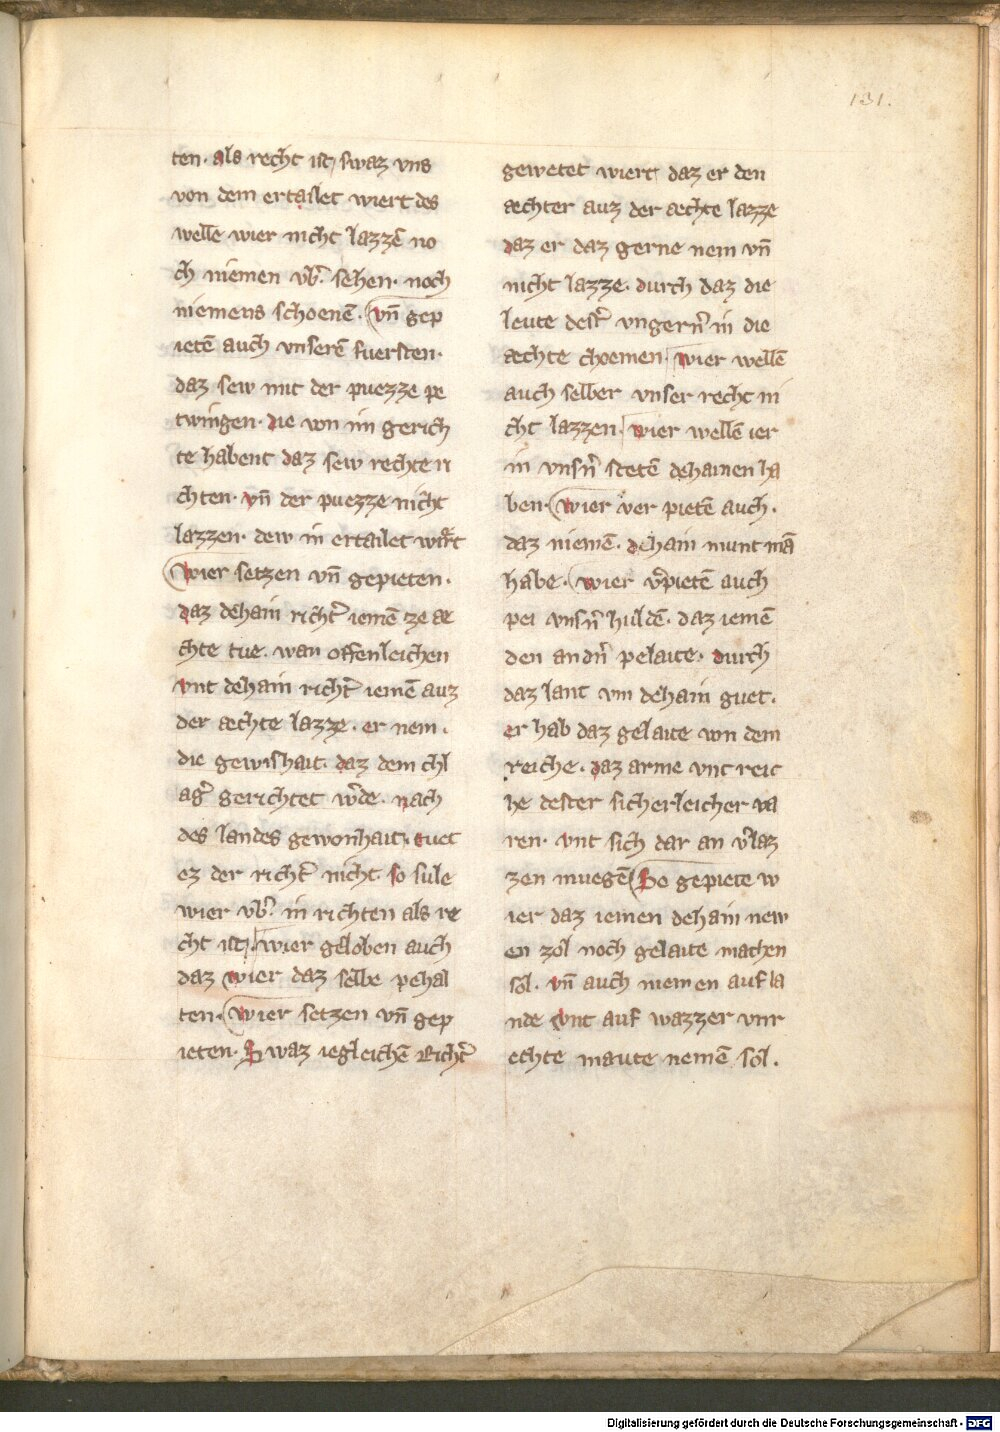 131.
ten. als recht ist, swaz vns
von dem ertailet wiert des
welle wier nicht lazzē no
ch niemen vb̄. sehen. noch
niemens schoenē. vn̄ gep
ietē auch vnserē fuersten.
daz sew mit der puezze pe
twingen. die von im gerich
te habent daz sew rechte ri
chten. vn̄ der puezze nicht
lazzen. dew in ertailet wirt
wier setzen vn̄ gepieten.
daz dehain richt̄ iemē ze ae
chte tue. wan offenleichen
vnt dehain richt̄ iemē auz
der aechte lazze. er nem.
die gewishait. daz dem chl
aḡ gerichtet w̄de. nach
des landes gewonhait. tuet
ez der richt̄ nicht. so sule
wier vb̄. in richten als re
cht ist, wier geloben auch
daz wier daz selbe pehal
ten. wier setzen vn̄ gep
ieten. Swaz iegleichē Richt̄
gewetet wiert daz er den
aechter auz der aechte lazze
daz er daz gerne nem vn̄
nicht lazze. durch daz die
leute dest̄ vngern̄ in die
aechte choemen wier wellē
auch selber vnser recht ni
cht lazzen. wier wellē ier
in vnsn̄ stetē dehainen ha
ben. wier ver pietē auch.
daz niemē. dehain munt mā
habe. wier v̄pietē auch
pei vnsn̄ huldē. daz iemē
den andn̄ pelaite. durch
daz lant vm dehain guet.
er hab daz gelaite von dem
reiche. daz arme vnt reic
he dester sicherleicher va
ren. vnt sich dar an v̄laz
zen muegē So gepiete w
ier daz iemen dehain new
en zol noch gelaite machen
sol. vn̄ auch niemen auf la
nde vnt auf wazzer vnr
echte maute nemē sol.
Digitalisierung gefördert durch die Deutsche Forschungsgemeinschaft - DFG